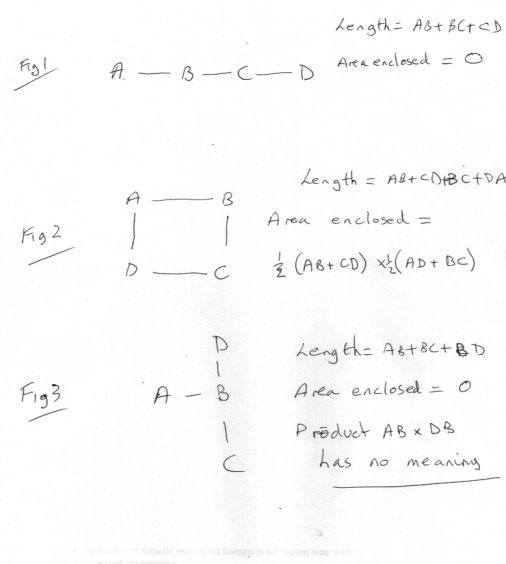 Length = AB + BC + CD
Fig 1
A — B — C — D
Area enclosed = 0
Length = AB + CD + BC + DA
A — B
Area enclosed =
Fig 2
D — C
½ (AB + CD) × ½ (AD + BC)
D
Length = AB + BC + BD
Fig 3
A — B
Area enclosed = 0
Product AB × DB
C
has no meaning